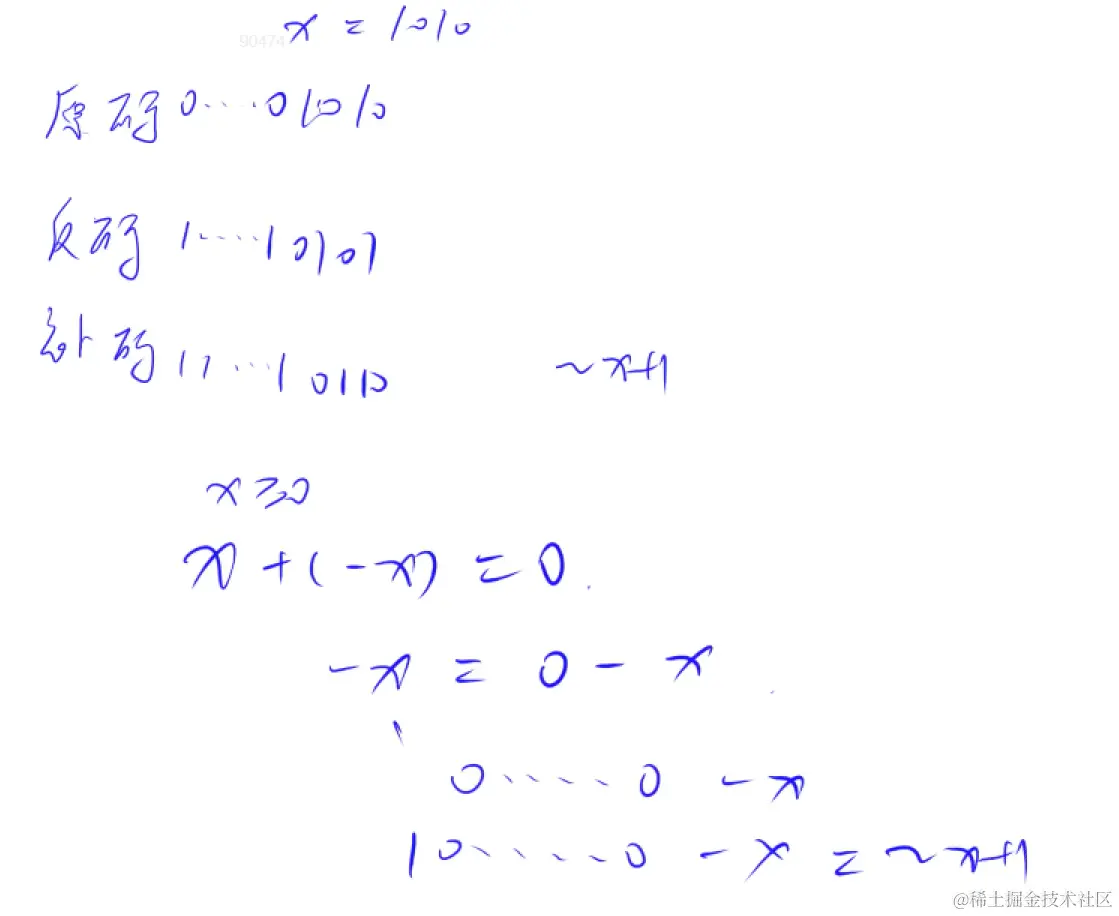 x = 1010
90474
原码 0····01010
反码 1·····10101
补码 11···10110 ~x+1
x≥0
x+(-x)=0.
-x = 0 - x
0·····0 -x
10·····0 - x = ~x+1
@稀土掘金技术社区